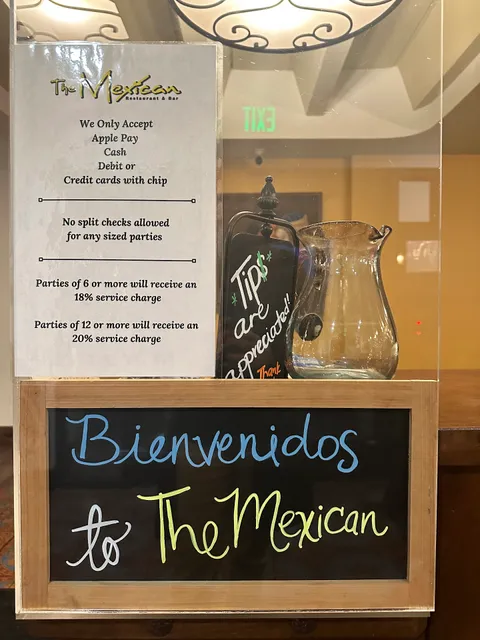 The Mexican
Restaurant & Bar
We Only Accept
Apple Pay
Cash
Debit or
Credit cards with chip
No split checks allowed
for any sized parties
Parties of 6 or more will receive an
18% service charge
Parties of 12 or more will receive an
20% service charge
EXIT
Tips
are
appreciated!!
Thank
Bienvenidos
to The Mexican